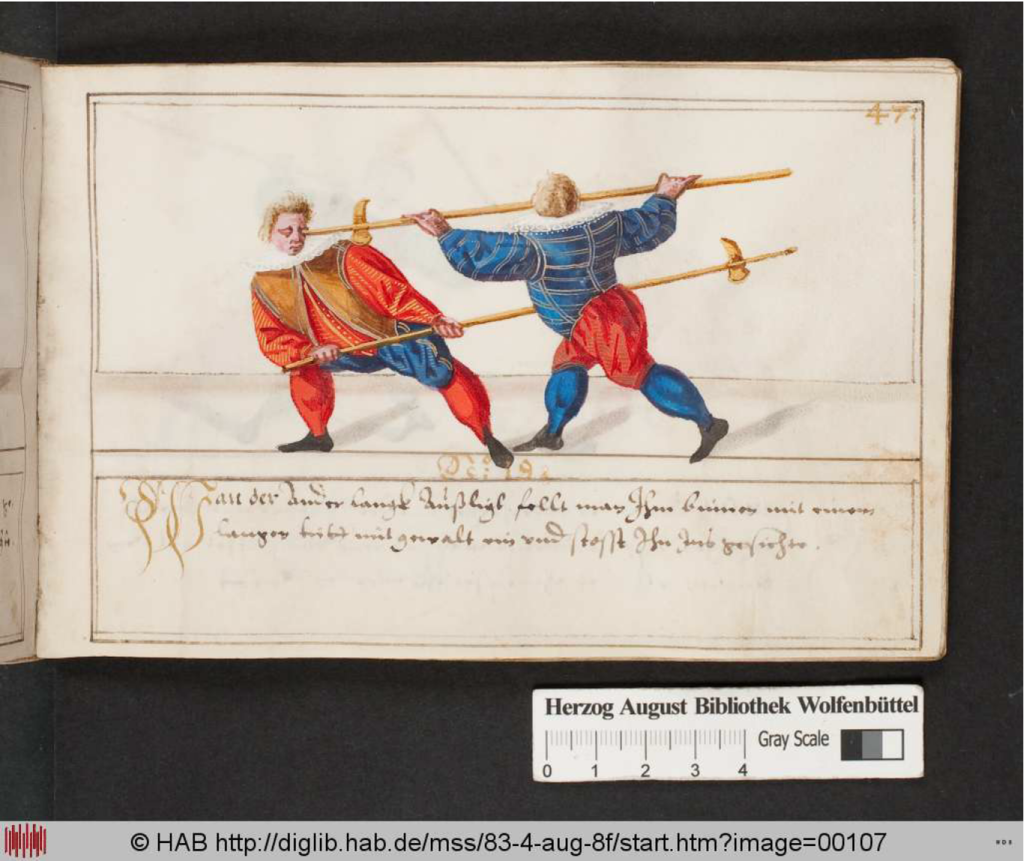 47.
No: 19.
Wan der Ander langk Außligt fellt man Ihm binnen mit einem
langen tritt mit gewalt ein vnd stosst Ihn Ins gesichte.
Herzog August Bibliothek Wolfenbüttel
Gray Scale
0 1 2 3 4
© HAB http://diglib.hab.de/mss/83-4-aug-8f/start.htm?image=00107